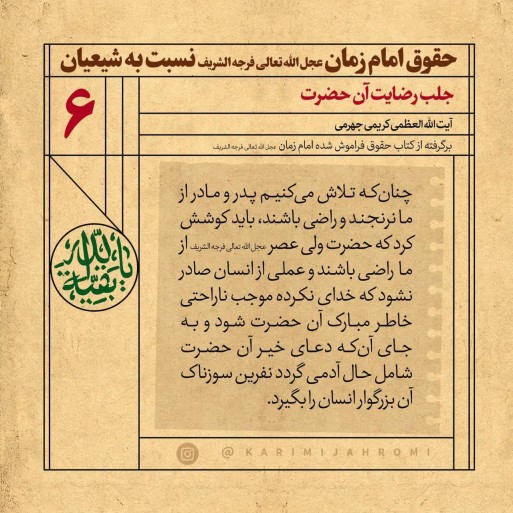 حقوق امام زمان عجل الله تعالی فرجه الشریف نسبت به شیعیان
۶
جلب رضایت آن حضرت
آیت الله العظمی کریمی جهرمی
برگرفته از کتاب حقوق فراموش شده امام زمان عجل الله تعالی فرجه الشریف
چنان‌که تلاش می‌کنیم پدر و مادر از
ما نرنجند و راضی باشند، باید کوشش
کرد که حضرت ولی عصر عجل الله تعالی فرجه الشریف از
ما راضی باشند و عملی از انسان صادر
نشود که خدای نکرده موجب ناراحتی
خاطر مبارک آن حضرت شود و به
جای آن‌که دعای خیر آن حضرت
شامل حال آدمی گردد نفرین سوزناک
آن بزرگوار انسان را بگیرد.
یا بقیة الله
@KARIMIJAHROMI